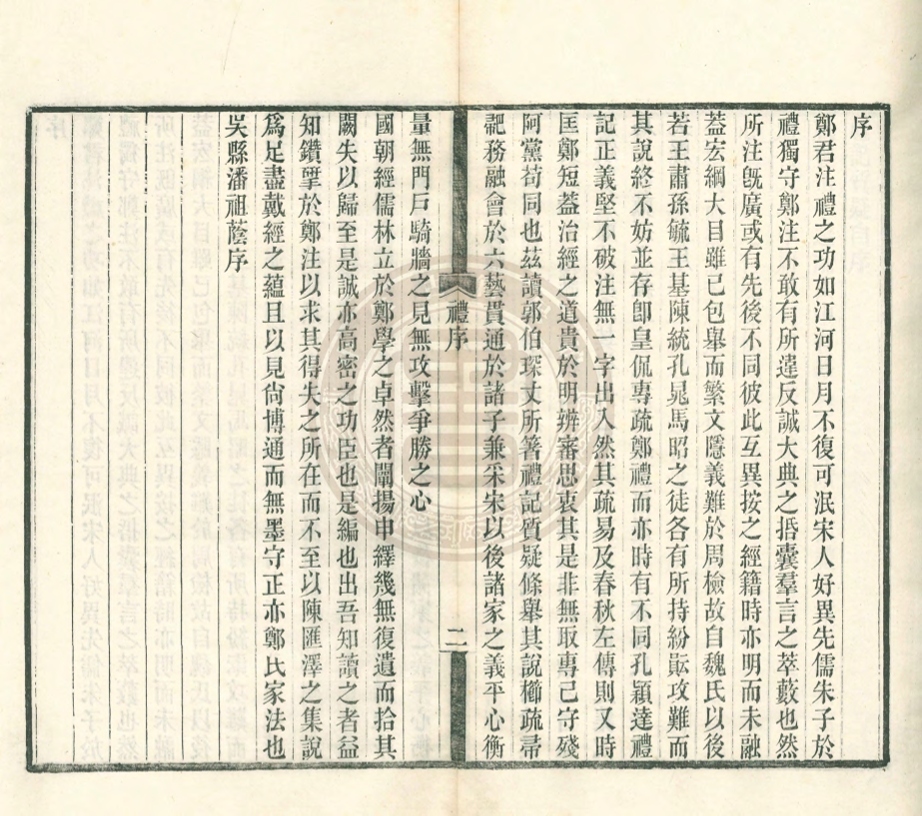 序
鄭君注禮之功如江河日月不復可泯宋人好異先儒朱子於
禮獨守鄭注不敢有所違反誠大典之捪囊羣言之萃藪也然
所注旣廣或有先後不同彼此互異按之經籍時亦明而未融
葢宏綱大目雖已包舉而繁文隱義難於周檢故自魏氏以後
若王肅孫毓王基陳統孔晁馬昭之徒各有所持紛紜攻難而
其說終不妨並存卽皇侃專疏鄭禮而亦時有不同孔穎達禮
記正義堅不破注無一字出入然其疏易及春秋左傳則又時
匡鄭短葢治經之道貴於明辨審思衷其是非無取專己守殘
阿黨苟同也茲讀郭伯琛丈所箸禮記質疑條舉其說櫛疏帚
靶務融會於六藝貫通於諸子兼采宋以後諸家之義平心衡
禮序
二
量無門戶騎牆之見無攻擊爭勝之心
國朝經儒林立於鄭學之卓然者闡揚申繹幾無復遺而拾其
闕失以歸至是誠亦高密之功臣也是編也出吾知讀之者益
知鑽揅於鄭注以求其得失之所在而不至以陳匯澤之集說
爲足盡戴經之蘊且以見尙博通而無墨守正亦鄭氏家法也
吳縣潘祖蔭序